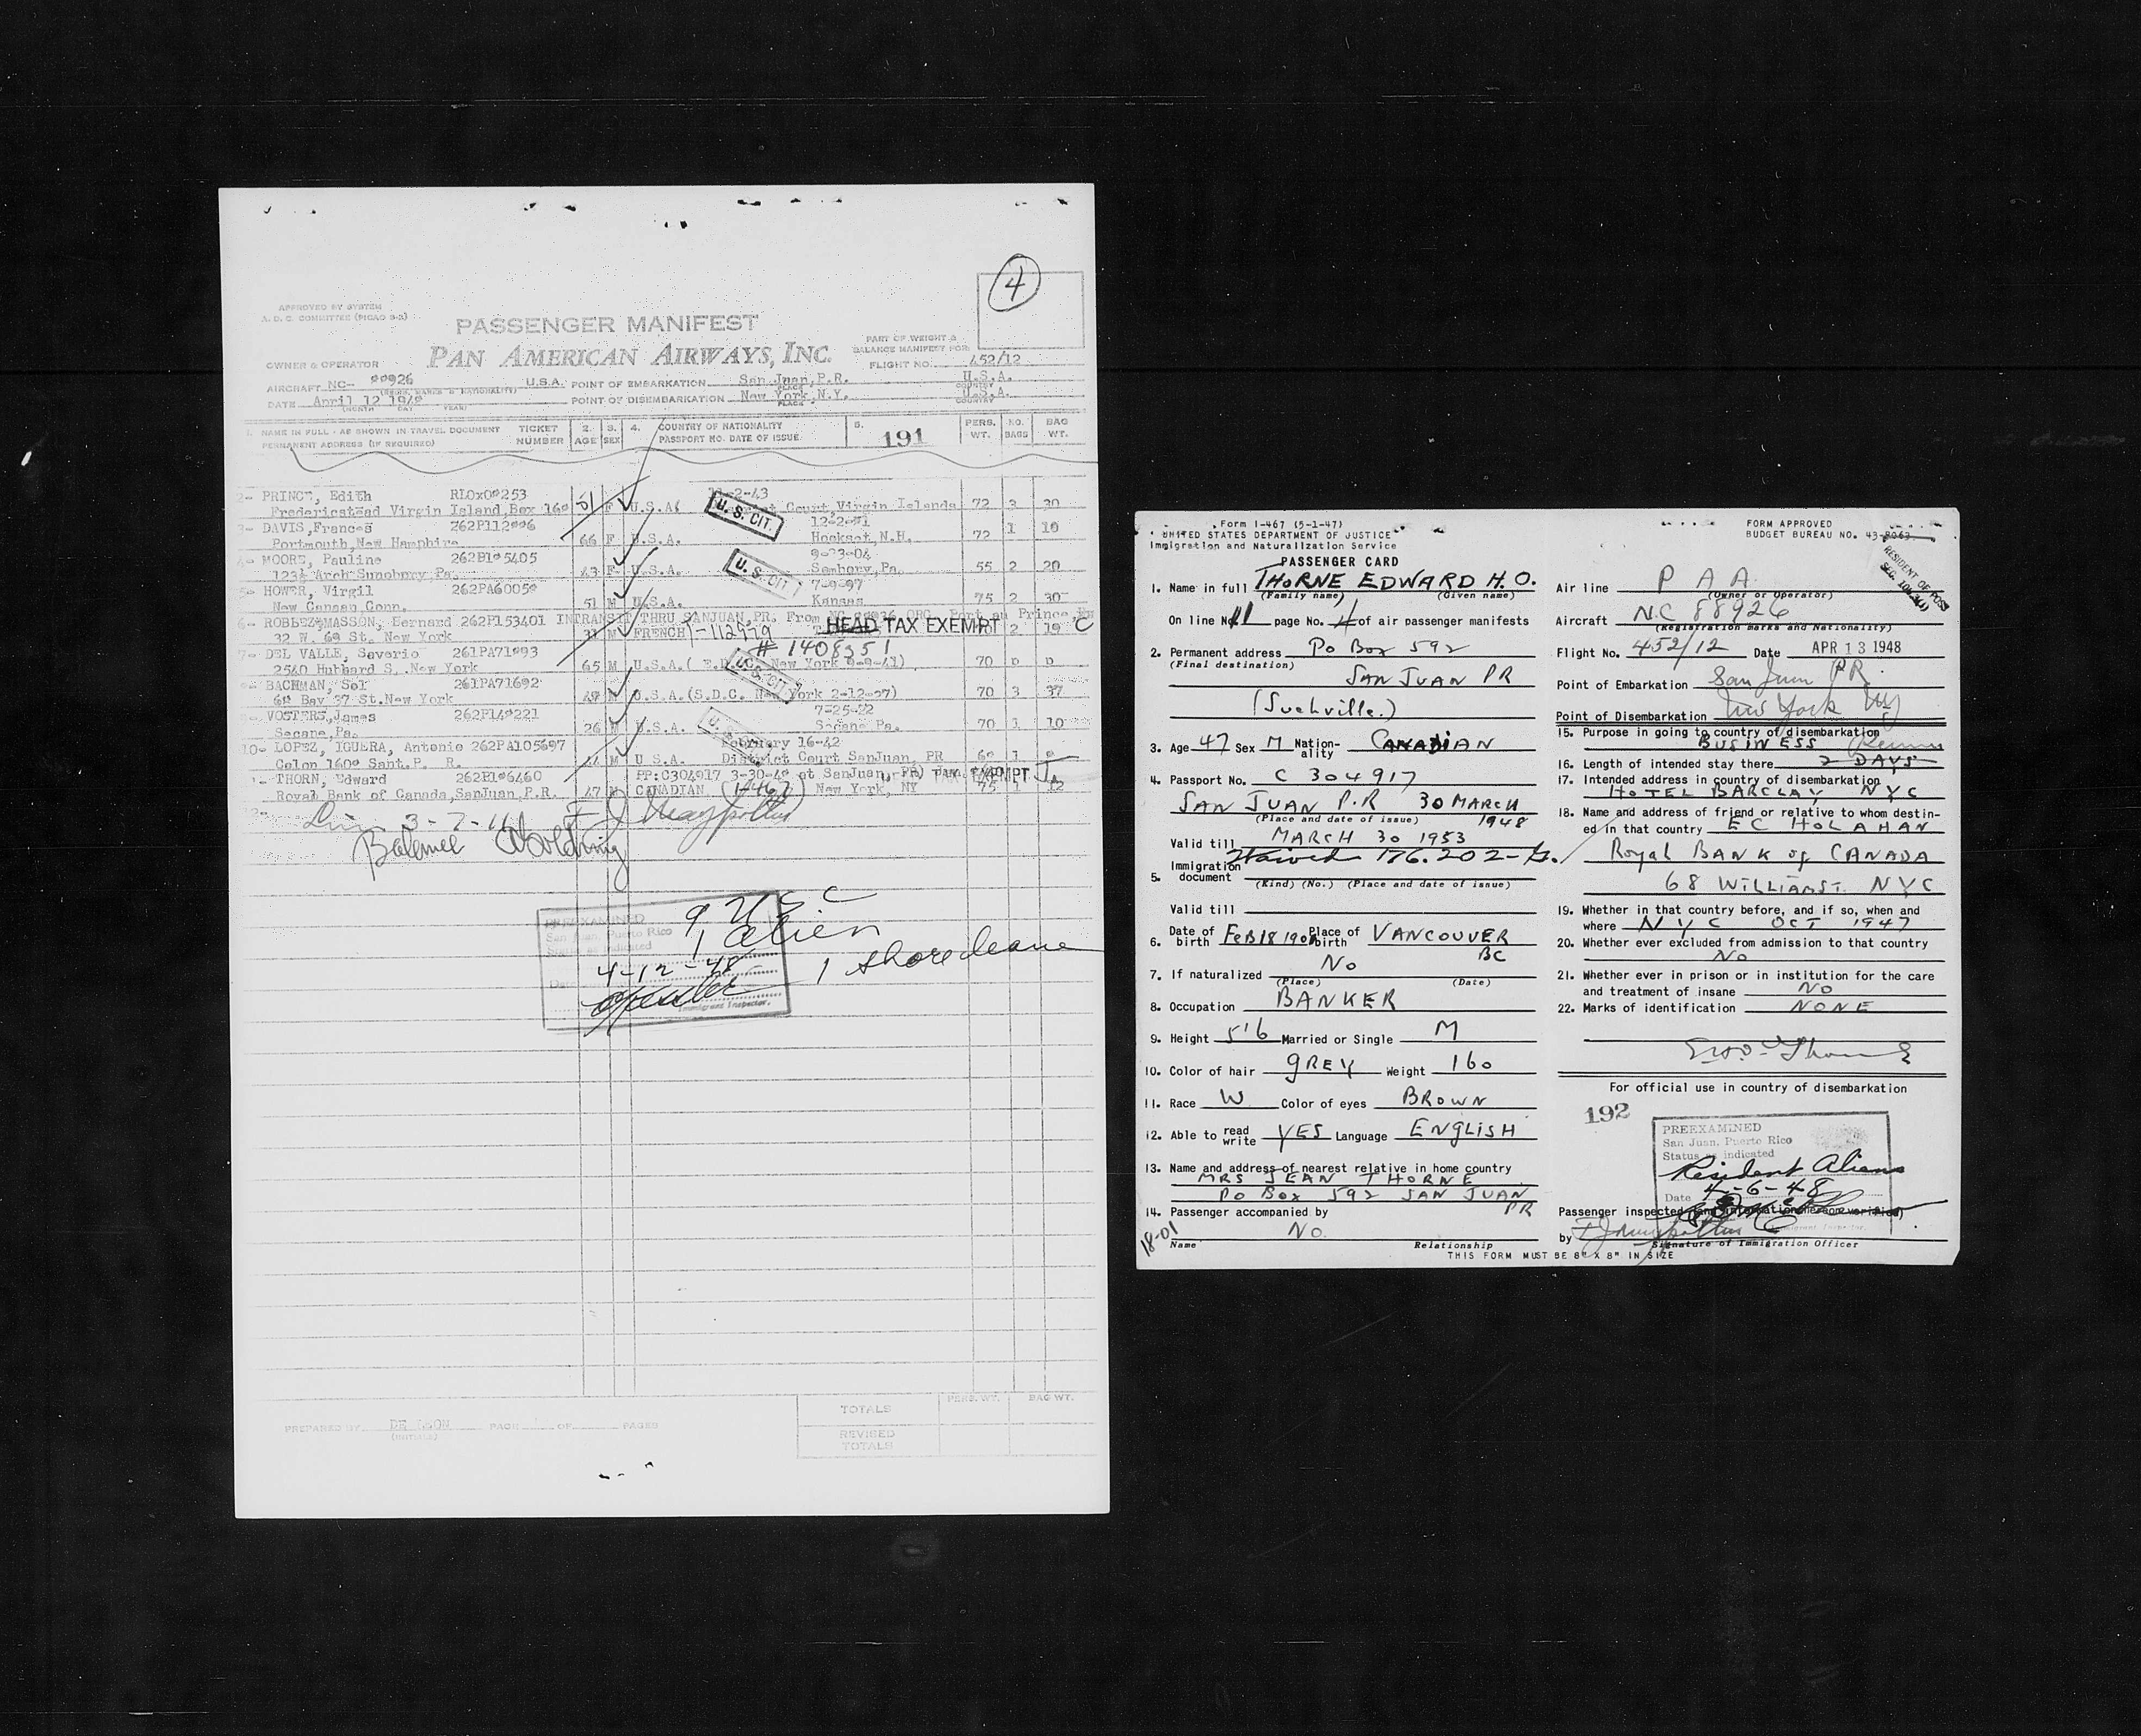 4
APPROVED BY SYSTEM
A. D. C. COMMITTEE (PICAO 9-3)
PASSENGER MANIFEST
PAN AMERICAN AIRWAYS, INC.
PART OF WEIGHT &
BALANCE MANIFEST FOR
OWNER & OPERATOR
FLIGHT NO. 452/12
AIRCRAFT NC- 88926 U.S.A. POINT OF EMBARKATION San Juan, P.R. U.S.A.
DATE April 12 1948 POINT OF DISEMBARKATION New York, N.Y. U.S.A.
1. NAME IN FULL - AS SHOWN IN TRAVEL DOCUMENT TICKET 2. 3. 4. COUNTRY OF NATIONALITY 5. 191 PERS. NO. BAG
PERMANENT ADDRESS (IF REQUIRED) NUMBER AGE SEX PASSPORT NO. DATE OF ISSUE WT. BAGS WT.
2- PRINCE, Edith RLOx08253 2-43
Fredericstead Virgin Island, Box 168 51 F U.S.A. Court, Virgin Islands 72 3 30
U. S. CIT.
3- DAVIS, Frances 262P112886
Portmouth, New Hamphire 66 F U.S.A. Hookset, N.H. 72 1 18
4- MOORE, Pauline 262B185405 9-23-04
123½ Arch Sunobury Pa. 43 F U.S.A. Sembory, Pa. 55 2 20
U. S. CIT
5- HOWER, Virgil 262PA60058
New Canaan Conn. 51 M U.S.A. Kansas 75 2 30
6- ROBLEZ-MASSON, Bernard 262P153401 INTRANSIT THRU SANJUAN, PR. From Port au Prince
32 W. 69 St. New York M FRENCH I-112979 HEAD TAX EXEMPT 2 19 C
# 1408351
7- DEL VALLE, Severio 261PA71893
2540 Hubbard S, New York 65 M U.S.A. New York 9-9-41) 70 0 0
BACHMAN, Sol 261PA71692
Bay 37 St. New York M U.S.A. (S.D.C. New York 2-12-27) 70 3 37
VOSTERS, James 262P148221 7-25-22
Secane, Pa. 26 M U.S.A. Secane Pa. 70 1 10
10- LOPEZ, IGUERA, Antonio 262PA105697 February 16-42
Colon 1608 Sant. P. R. 44 M U S.A. District Court SanJuan, PR 1
THORN, Edward 262P186460 PP:C304917 3-30-48 at SanJuan, PR) TAX EXEMPT
Royal Bank of Canada, SanJuan, P.R. 47 M CANADIAN (I-467) New York, NY 75 1 12
9 USC
1 alien
1 shore leave
PREEXAMINED
San Juan, Puerto Rico
Status as indicated
4-12-48
Immigrant Inspector.
TOTALS PERS. WT. BAG WT.
REVISED
TOTALS
PREPARED BY DE LEON PAGE OF PAGES
(INITIALS)
Form I-467 (5-1-47)
UNITED STATES DEPARTMENT OF JUSTICE
Immigration and Naturalization Service
FORM APPROVED
BUDGET BUREAU NO. 43-R063
PASSENGER CARD
1. Name in full THORNE EDWARD H. O.
(Family name) (Given name)
On line No. 11 page No. 4 of air passenger manifests
2. Permanent address PO BOX 592
(Final destination)
SAN JUAN PR
3. Age 47 Sex M Nation-ality CANADIAN
4. Passport No. C 304917
SAN JUAN P.R 30 MARCH 1948
(Place and date of issue)
Valid till MARCH 30 1953
Waived 176.202-
5. Immigration document
(Kind) (No.) (Place and date of issue)
Valid till
6. Date of birth FEB 18 Place of birth VANCOUVER BC
7. If naturalized NO
(Place) (Date)
8. Occupation BANKER
9. Height 5'6 Married or Single M
10. Color of hair GREY Weight 160
11. Race W Color of eyes BROWN
12. Able to read write YES Language ENGLISH
13. Name and address of nearest relative in home country
MRS JEAN THORNE
PO BOX 592 SAN JUAN PR
14. Passenger accompanied by
NO.
Name Relationship
18-01
THIS FORM MUST BE 8" X 8" IN SIZE
Air line P A A
(Owner or Operator)
Aircraft NC 88926
(Registration marks and Nationality)
Flight No. 452/12 Date APR 13 1948
Point of Embarkation San Juan PR
Point of Disembarkation New York NY
15. Purpose in going to country of disembarkation
BUSINESS
16. Length of intended stay there 2 DAYS
17. Intended address in country of disembarkation
HOTEL BARCLAY NYC
18. Name and address of friend or relative to whom destin-
ed in that country E C HOLAHAN
Royal BANK of CANADA
68 WILLIAM ST. NYC
19. Whether in that country before, and if so, when and
where NYC OCT 1947
20. Whether ever excluded from admission to that country
NO
21. Whether ever in prison or in institution for the care
and treatment of insane NO
22. Marks of identification NONE
For official use in country of disembarkation
192
PREEXAMINED
San Juan, Puerto Rico
Status as indicated
Resident Alien
Date 4-6-48
Passenger inspected
by
Signature of Immigration Officer